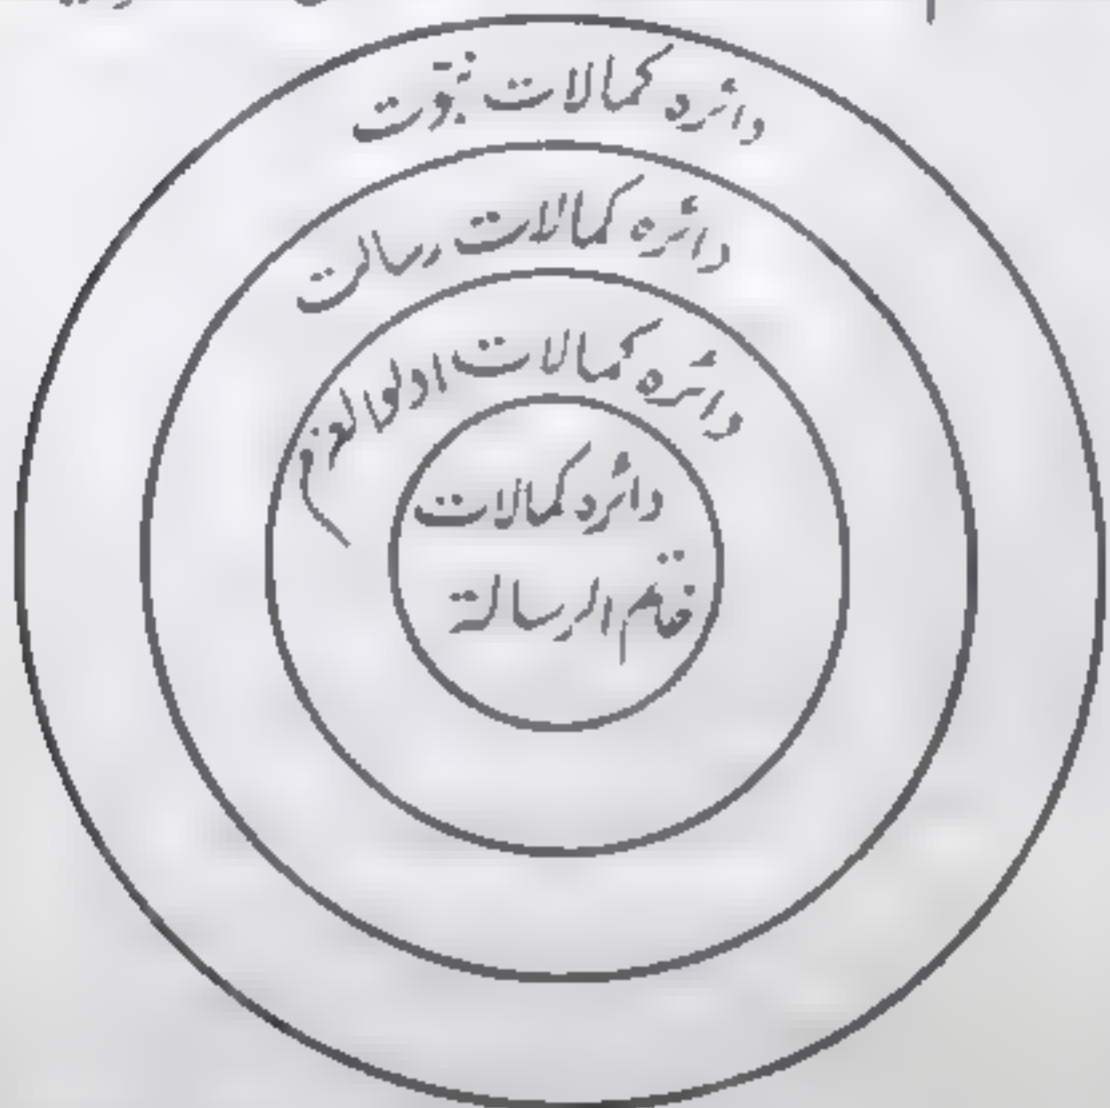 دائره کمالات نبوّت
دائره کمالات رسالت
دائره کمالات اولوالعزم
دائره کمالات
ختام الرسالة